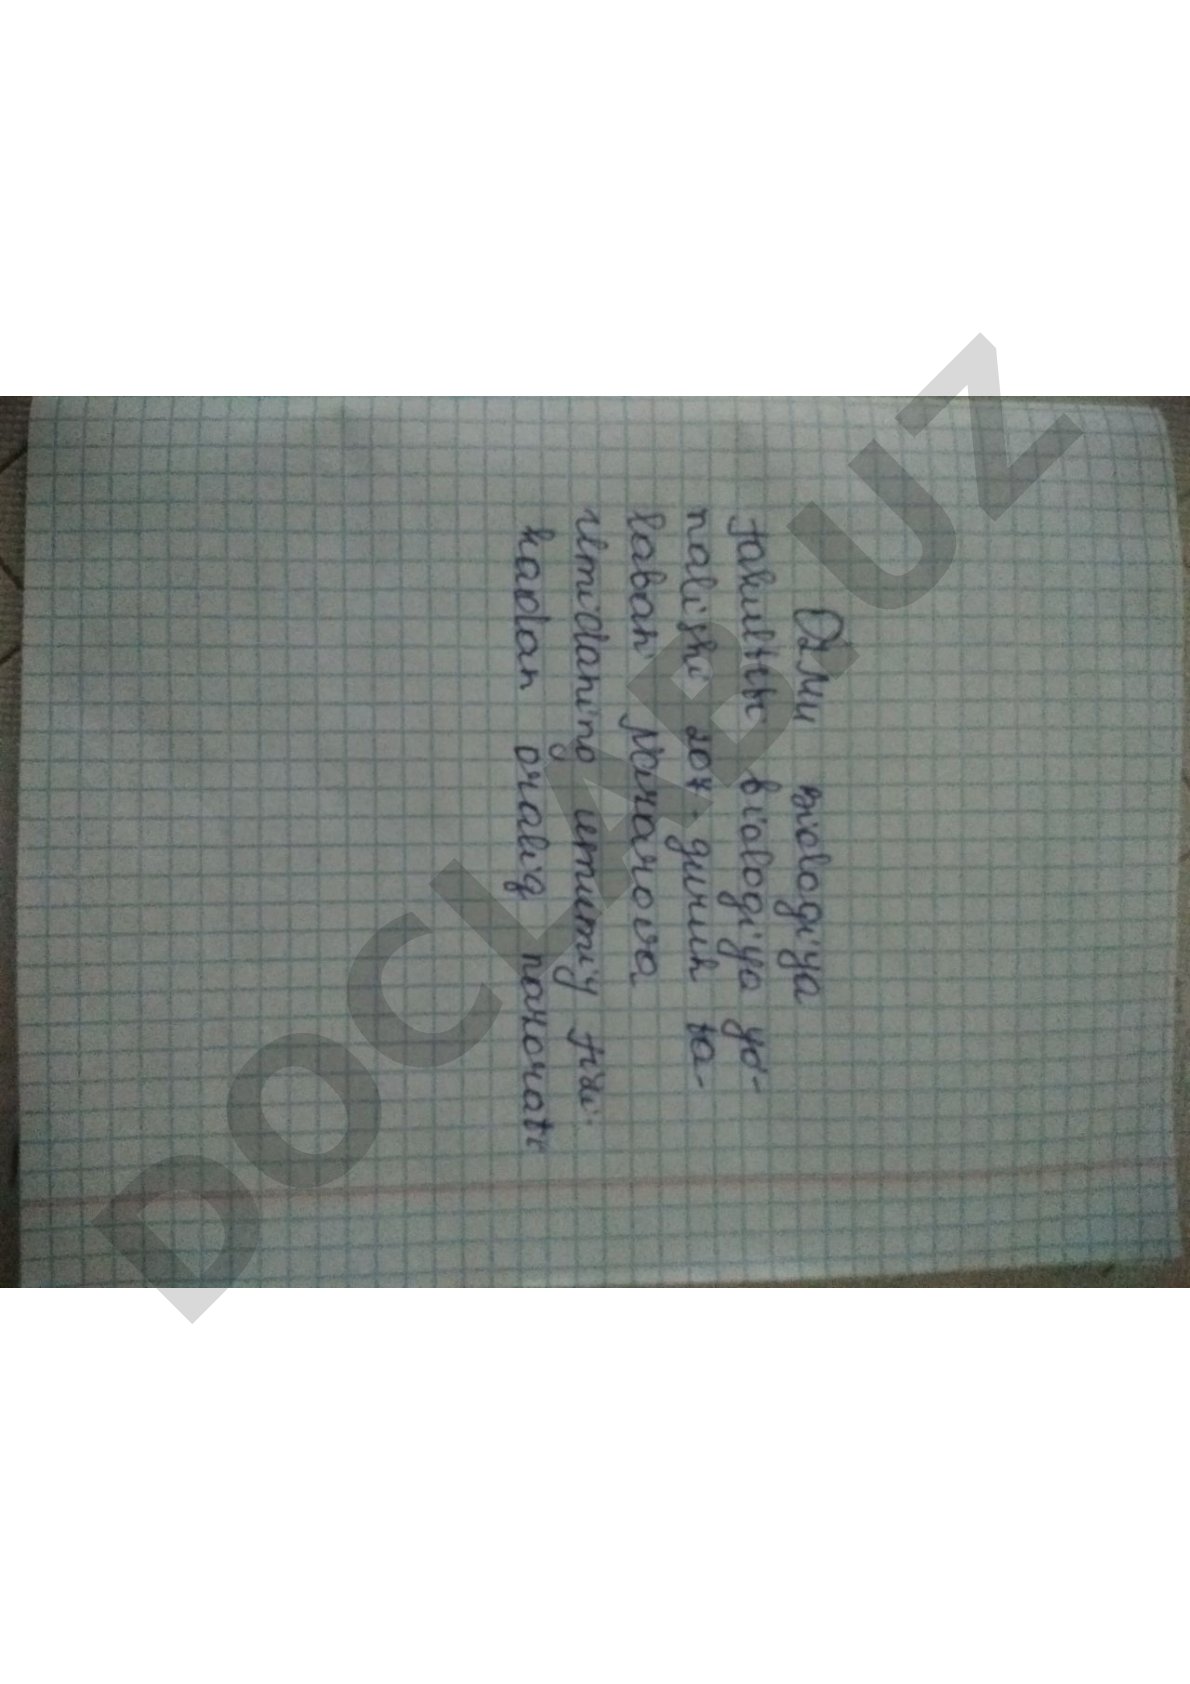 OʻzMU biologiya
fakulteti biologiya yoʻ-
nalishi 207-guruh ta-
labasi Nazarova
umumiy fizi-
kadan oraliq nazorati
DOCLAB.UZ